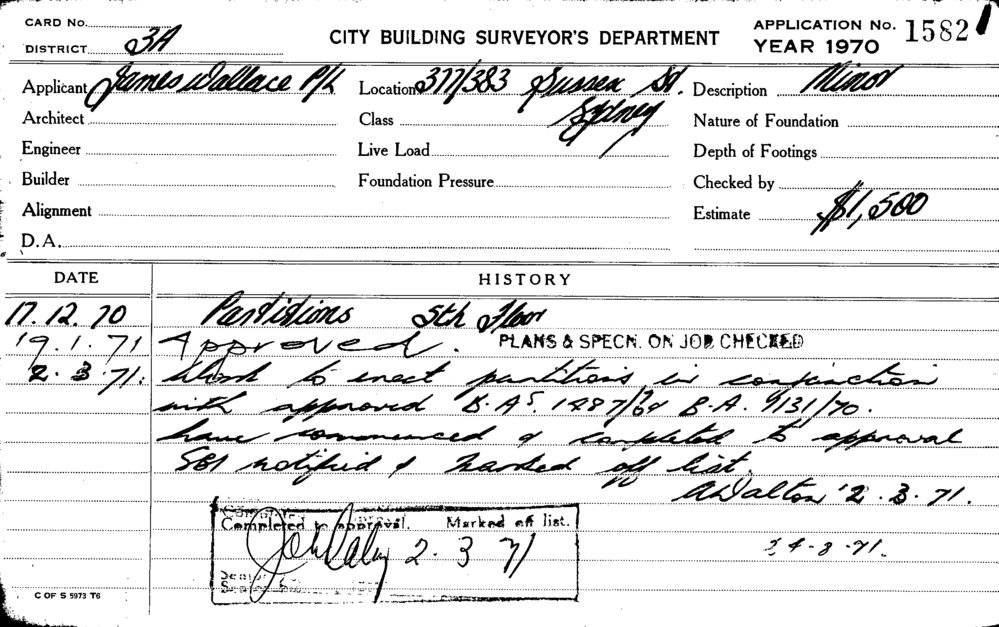 CARD No.
DISTRICT 3A
CITY BUILDING SURVEYOR'S DEPARTMENT
APPLICATION No. 1582
YEAR 1970
Applicant James Wallace P/L Location 377/383 Sussex St. Description Minor
Architect Class Sydney Nature of Foundation
Engineer Live Load Depth of Footings
Builder Foundation Pressure Checked by
Alignment Estimate $1,500
D.A.
DATE HISTORY
17.12.70 Partitions 5th Floor
19.1.71 Approved. PLANS & SPECN. ON JOB CHECKED
2.3.71. Work to erect partitions in conjunction
with approved B.As. 1487/69 B.A. 9131/70.
have commenced & completed to approval
SBI notified & marked off list.
A Dalton 2.3.71.
Completed to approval. Marked off list.
2.3.71
4.3.71.
C OF S 5973 T6